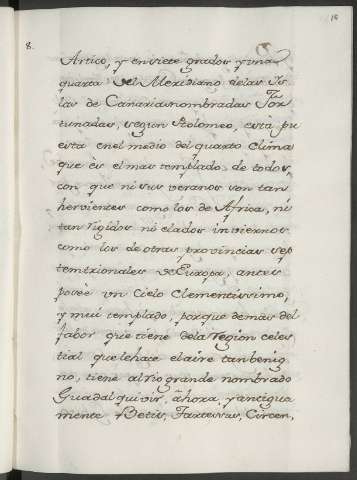 10
8.
Artico, y en siete grados y una
quarta del Meridiano de las Is
las de Canarias nombradas For
tunadas, segun Ptolomeo, está pu
esta en el medio del quarto Clima
que és el mas templado de todos,
con que ni sus veranos son tan
hervientes como los de Africa, ni
tan rigidos ni elados inviernos
como los de otras provincias sep
temtrionales de Europa, antes
poseè un Cielo Clementissimo,
y mui templado, porque demas del
fabor que tiene de la region celes
tial que le hace el aire tan benig
no, tiene al rio grande nombrado
Guadalquivir, ahora, y antigua
mente Betis, Tartessus, Circen,